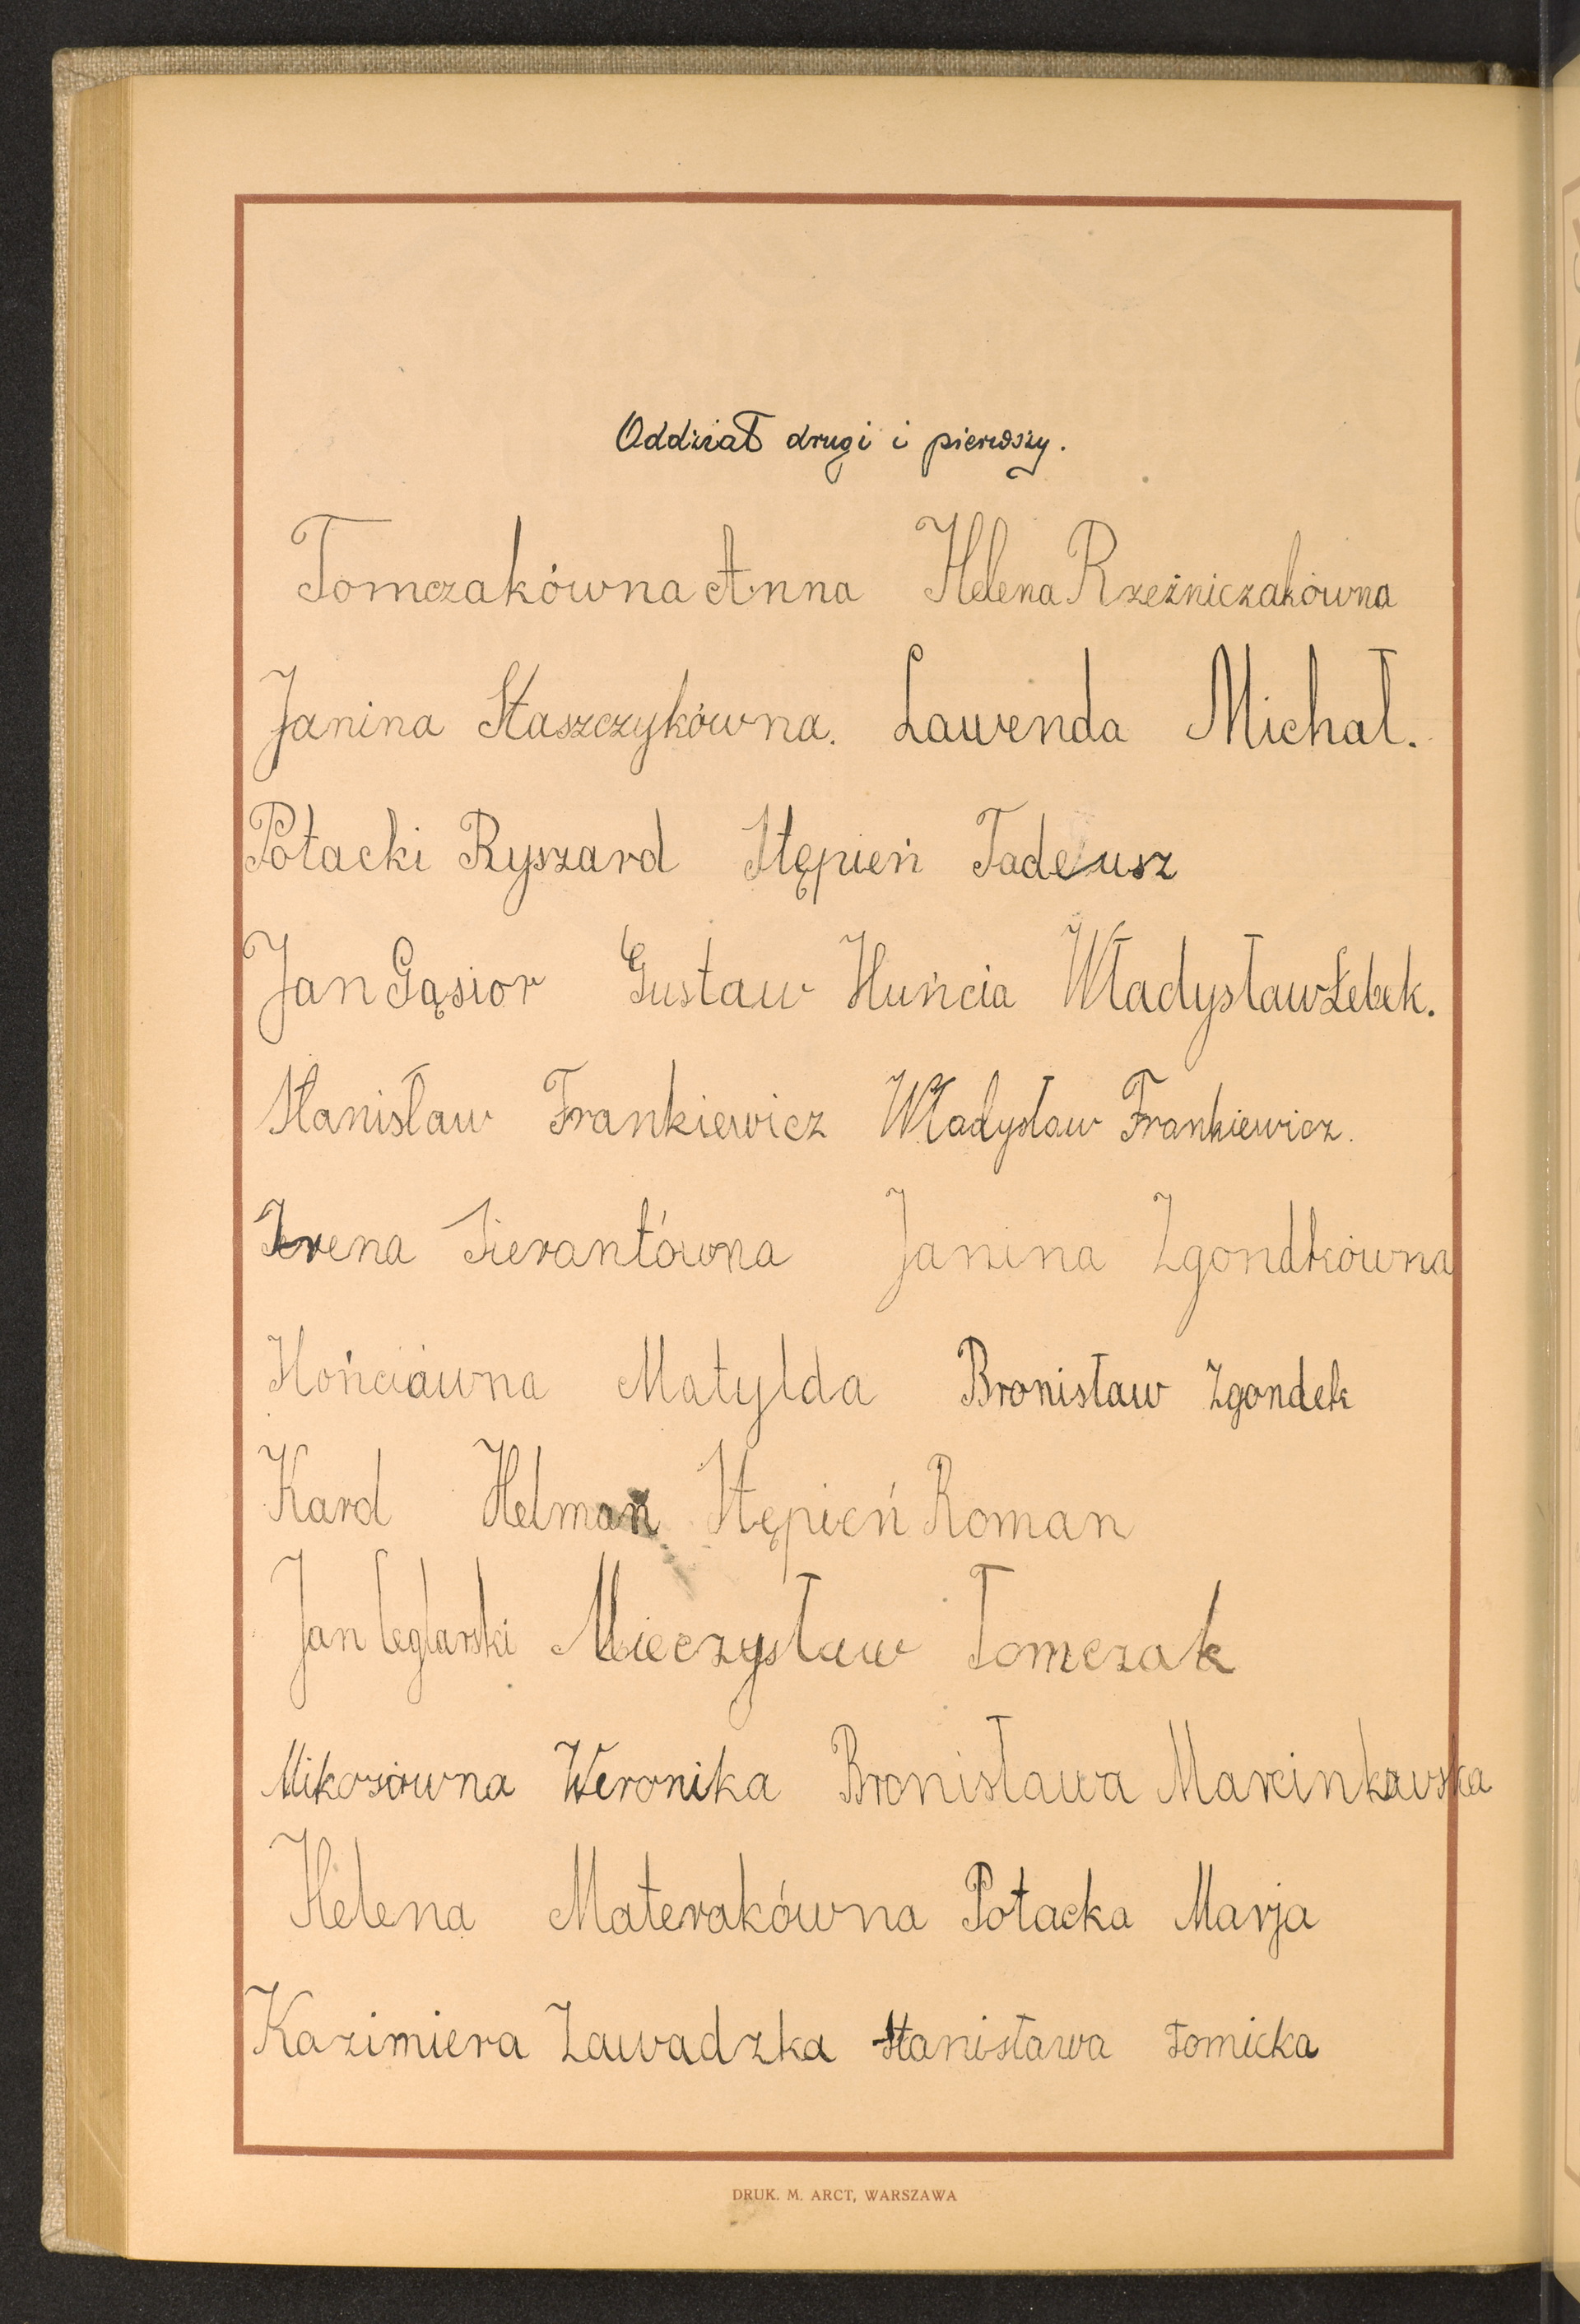 Oddział drugi i pierwszy.
Tomczakówna Anna Helena Rzeźniczakówna
Janina Staszczykówna. Lawenda Michał.
Połacki Ryszard Stępień Tadeusz
Jan Gąsior Gustaw Huńcia Władysław Łebek.
Stanisław Frankiewicz Władysław Frankiewicz.
Irena Sierantówna Janina Zgondkówna
Hońciówna Matylda Bronisław Zgondek
Kard Helman Stępień Roman
Jan Ceglarski Mieczysław Tomczak
Mikosówna Weronika Bronisława Marcinkowska
Helena Materakówna Połacka Marja
Kazimiera Zawadzka Stanisława Tomicka
DRUK. M. ARCT, WARSZAWA